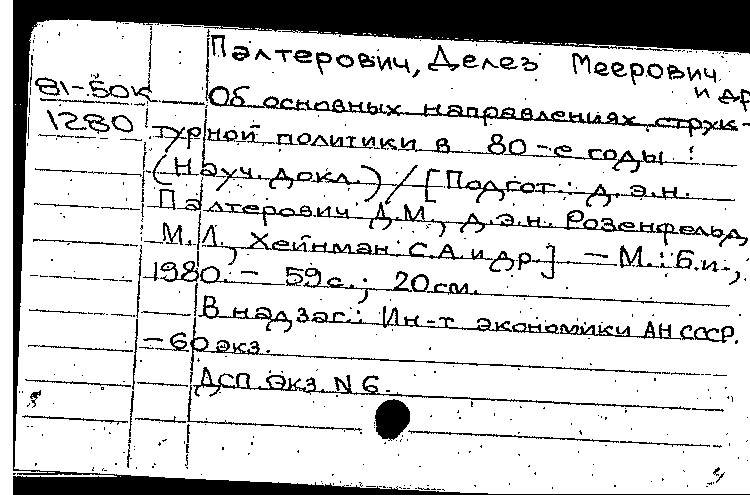 Палтерович, Делез Меерович
и др
81-50к
Об основных направлениях струк-
1280
турной политики в 80-е годы :
(Науч. докл.) / [Подгот.: д.э.н.
Палтерович Д.М., д.э.н. Розенфельд
М.Л., Хейнман С.А. и др.] – М.: Б.и.,
1980. – 59 с.; 20 см.
В надзаг.: Ин-т экономики АН СССР.
– 60 экз.
ДСП. Экз. N 6.